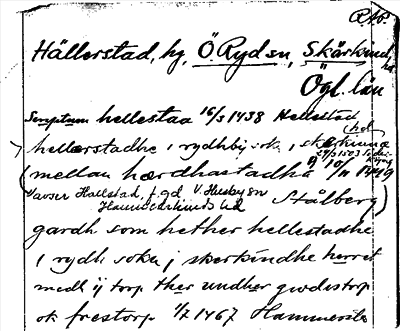 Rbr.
Hällerstad, hg, Ö. Ryd sn, Skärkind hd
Ögl. län
Scriptum hellestaa 16/3 1438 Hellestad
hellerstadhe i rydhby sok i skærkinna hd
(mellan hærdhastadha 9/11 1449
avser Hallestad, f.gd V. Husby sn
Hammarkinds hd Stålberg)
gardh som hether hellestadhe
i rydh sokn j skerkindhe herret
medh ij torp ther undher gwdistorp
ok frestorp 1/7 1467 Hammersta